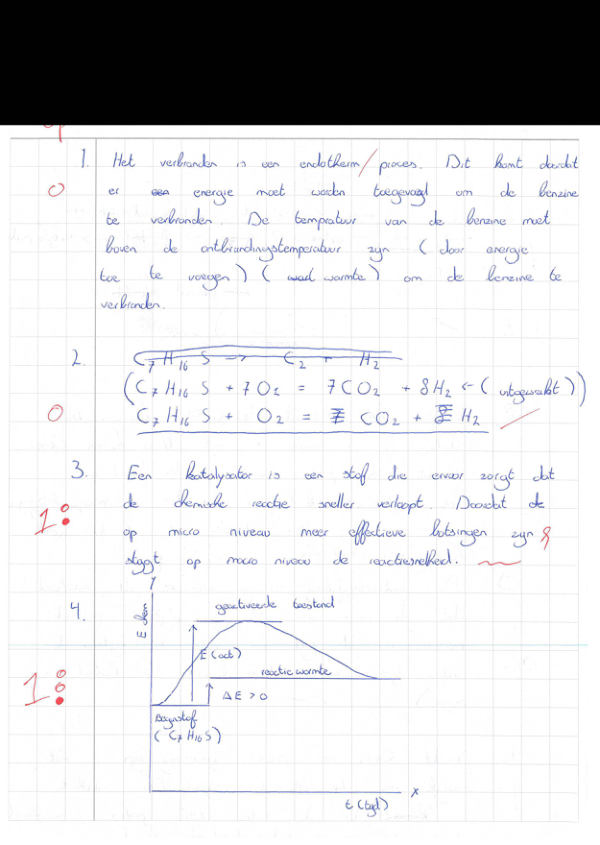 1. Het verbranden is een endotherm/ proces. Dit komt doordat
0 er een energie moet worden toegevoegd om de benzine
te verbranden. De tempratuur van de benzine moet
boven de ontbrandingstemperatuur zijn ( door energie
toe te voegen ) ( warmte ) om de benzine te
verbranden.
2. C7 H16 S -> C2 + H2
(C7 H16 S + 7 O2 = 7 CO2 + 8H2 <- ( uitgewerkt ))
0 C7 H16 S + O2 = CO2 + H2
3. Een katalysator is een stof die ervoor zorgt dat
de chemische reactie sneller verloopt. Doordat de
1 op micro niveau meer effectieve botsingen zijn
stijgt op macro niveau de reactiesnelheid.
4. geactiveerde toestand
E chem
E (act)
reactie warmte
1 ΔE > 0
Beginstof
( C7 H16 S )
x
t (tijd)